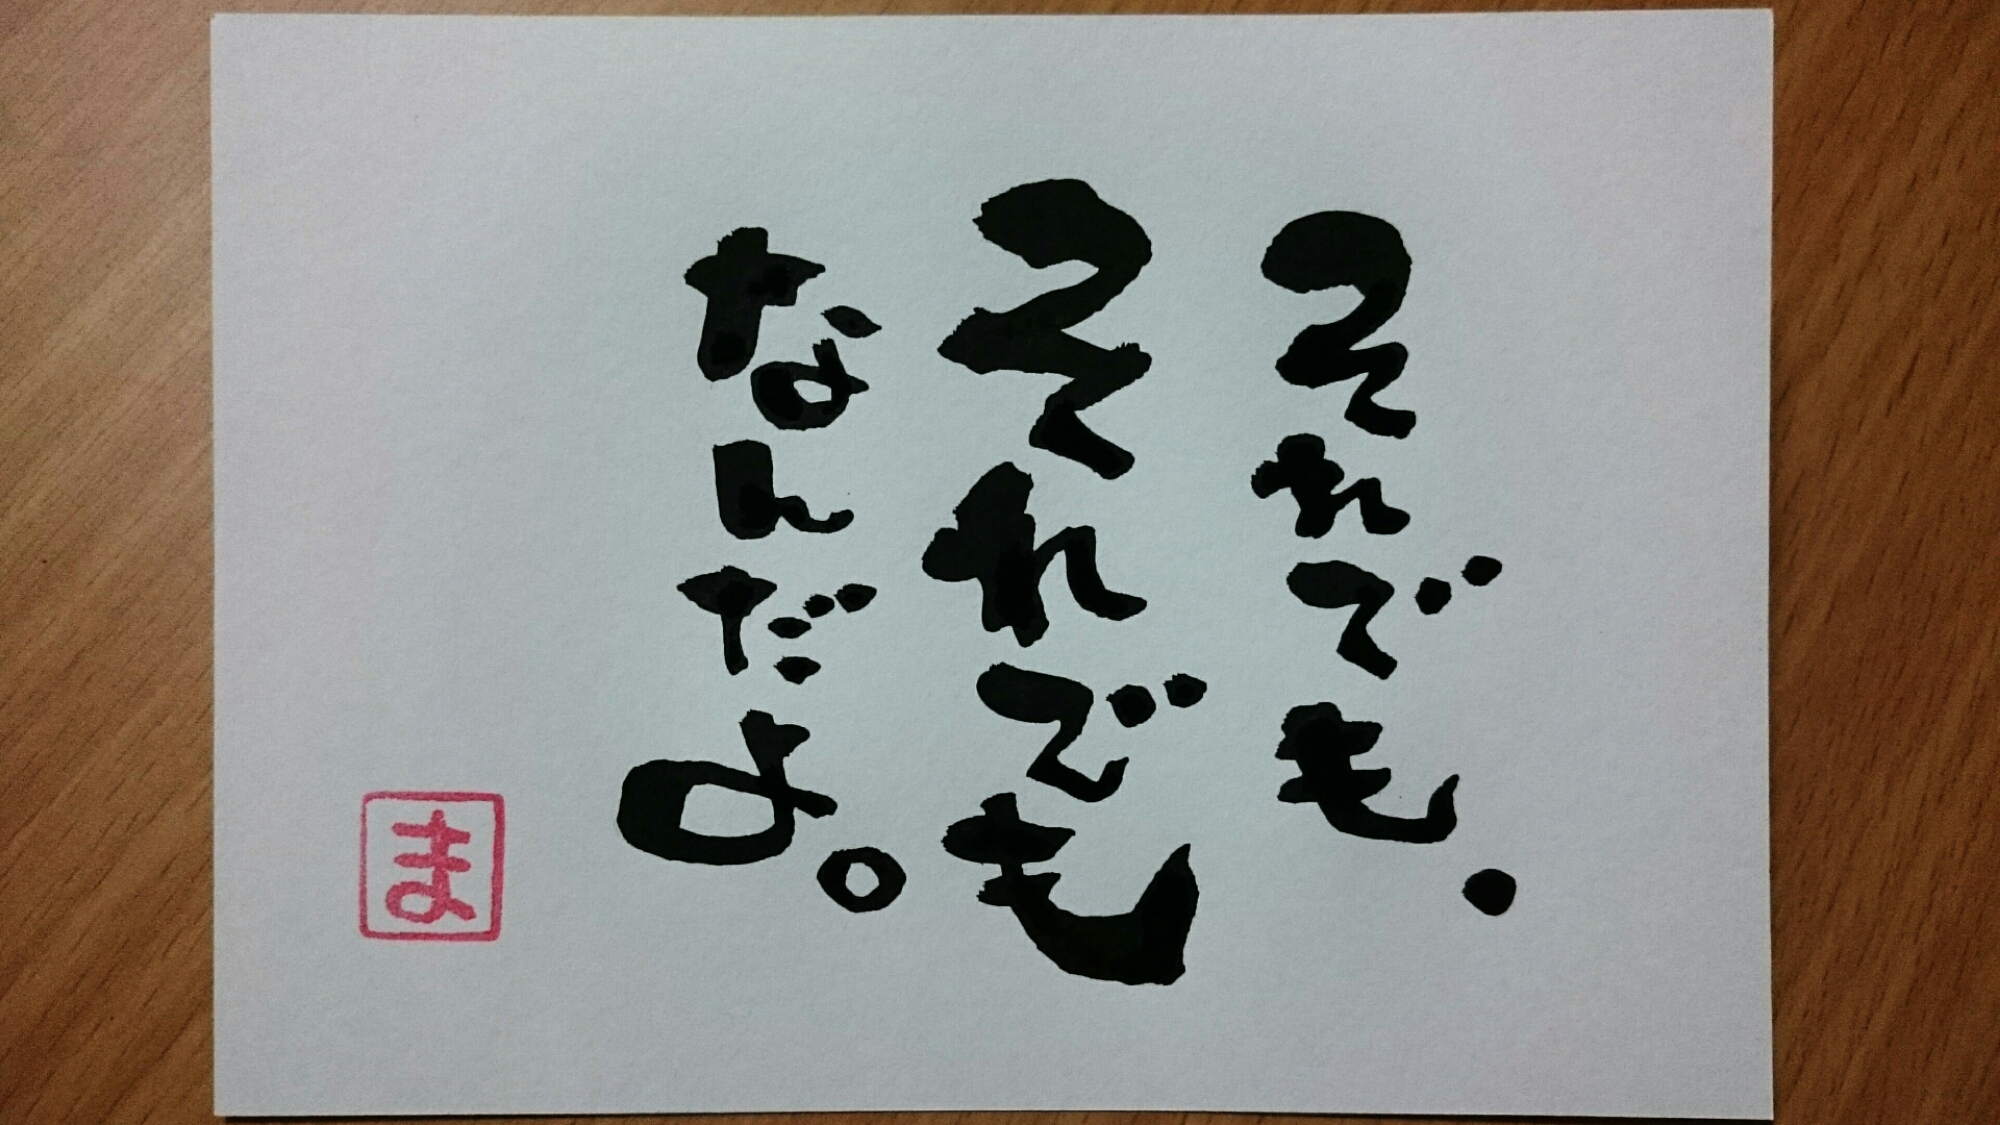 それでも.
それでも
なんだよ。
ま